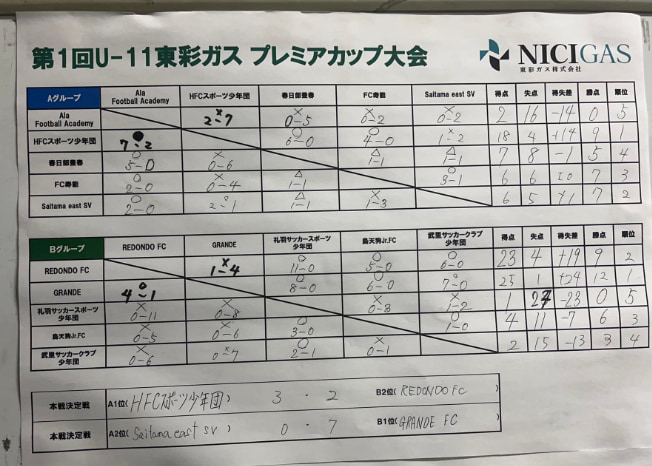 第1回U-11東彩ガス プレミアカップ大会
NICIGAS
東彩ガス株式会社
Aグループ Ala Football Academy HFCスポーツ少年団 春日部豊春 FC寿能 Saitama east SV 得点 失点 得失差 勝点 順位
Ala Football Academy × 2-7 × 0-5 × 0-2 × 0-2 2 16 -14 0 5
HFCスポーツ少年団 7-2 ○ 6-0 ○ 4-0 × 1-2 18 4 +14 9 1
春日部豊春 ○ 5-0 × 0-6 △ 1-1 △ 1-1 7 8 -1 5 4
FC寿能 ○ 2-0 × 0-4 △ 1-1 ○ 3-1 6 6 ±0 7 3
Saitama east SV ○ 2-0 ○ 2-1 △ 1-1 × 1-3 6 5 +1 7 2
Bグループ REDONDO FC GRANDE 札羽サッカースポーツ少年団 烏天狗Jr.FC 武里サッカークラブ少年団 得点 失点 得失差 勝点 順位
REDONDO FC × 1-4 ○ 11-0 ○ 5-0 ○ 6-0 23 4 +19 9 2
GRANDE ○ 4-1 ○ 8-0 ○ 6-0 ○ 7-0 25 1 +24 12 1
札羽サッカースポーツ少年団 × 0-11 × 0-8 × 0-3 × 1-2 1 24 -23 0 5
烏天狗Jr.FC × 0-5 × 0-6 ○ 3-0 ○ 1-0 4 11 -7 6 3
武里サッカークラブ少年団 × 0-6 × 0-7 ○ 2-1 × 0-1 2 15 -13 3 4
本戦決定戦 A1位(HFCスポーツ少年団) 3 - 2 B2位(REDONDO FC)
本戦決定戦 A2位(Saitama east SV) 0 - 7 B1位(GRANDE FC)